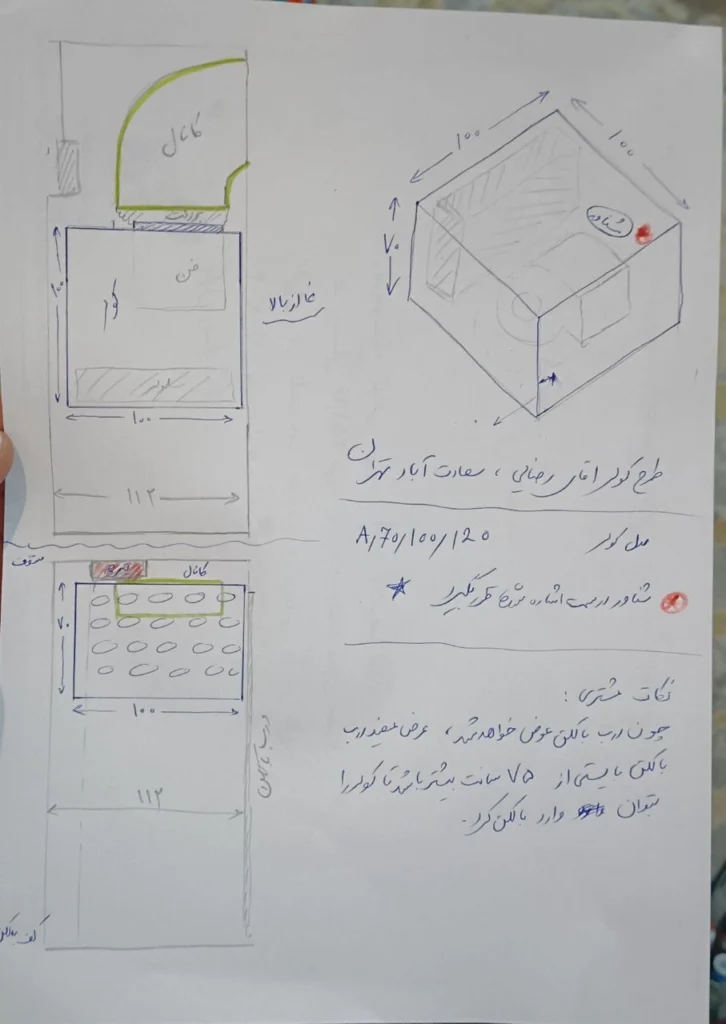 کانال
برزنت
فن
کولر
۱۰۰
۱۰۰
۱۱۲
نما از بالا
۱۰۰
۱۰۰
۷۰
شناور
طرح کولر آقای رضایی ، سعادت آباد تهران
مدل کولر A/70/100/120
شناور در سمت اشاره شده قرار گیرد
نکات مشتری :
چون درب بالکن عوض خواهد شد ، عرض مفید درب
بالکن بایستی از ۷۵ سانت بیشتر باشد تا کولر را
بتوان وارد بالکن کرد .
سقف
کانال
۷۰
۱۰۰
۱۱۲
درب بالکن
کف بالکن